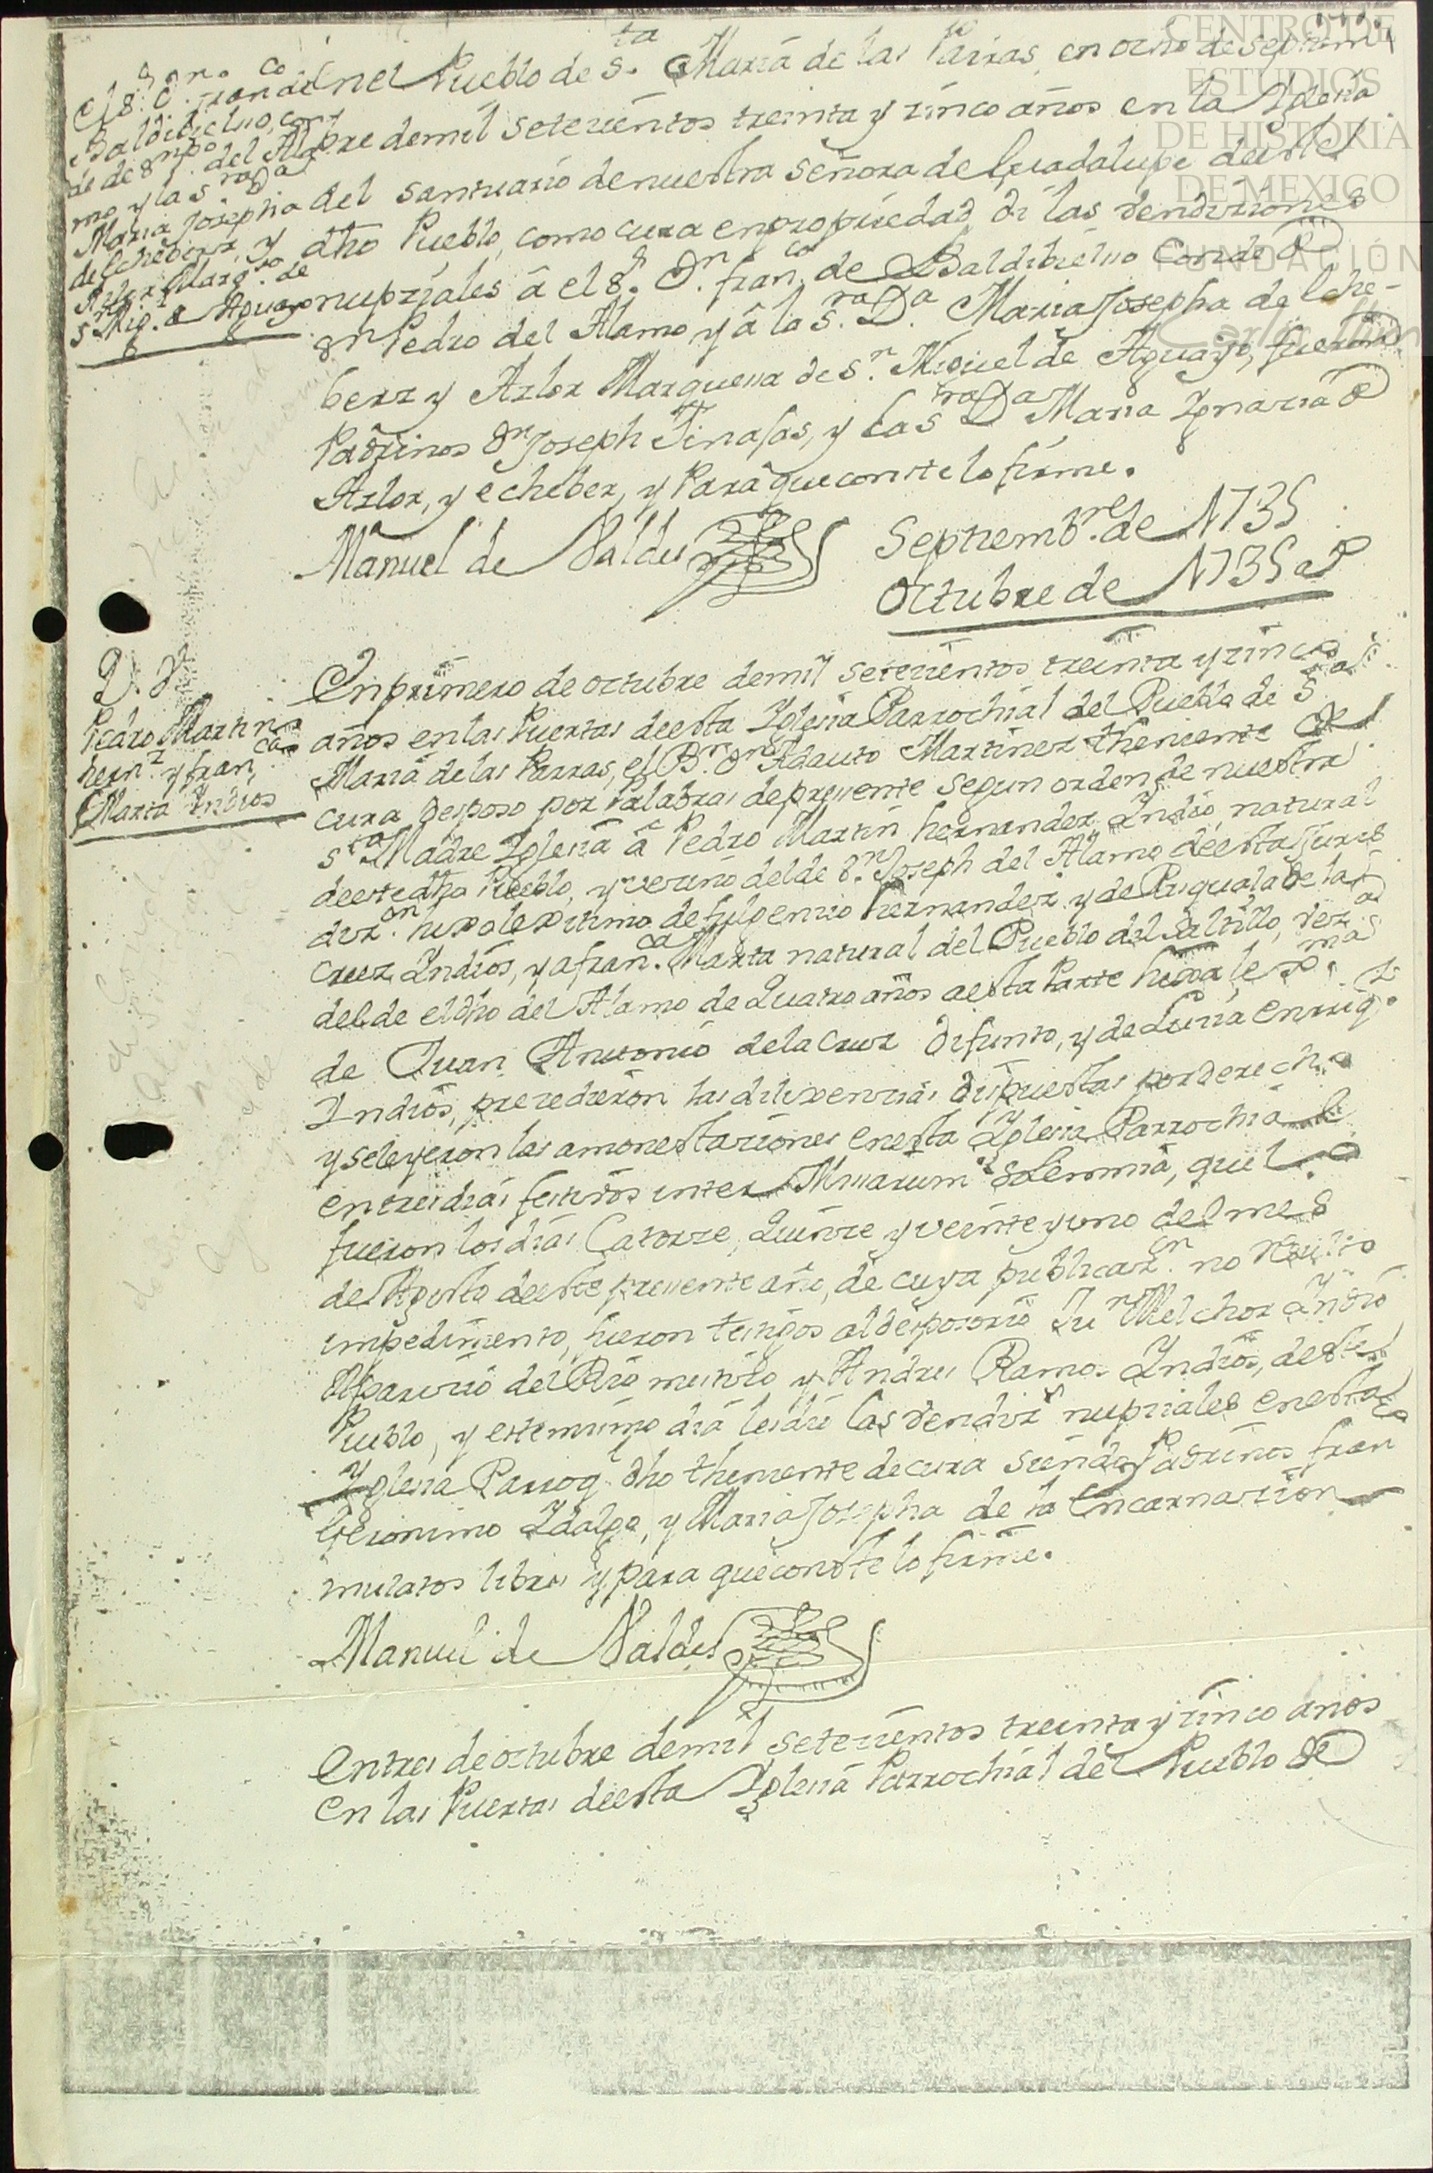 CENTRO DE
ESTUDIOS
DE HISTORIA
DE MEXICO
FUNDACIÓN
Carlos Slim
El Sr. Dn. Franco. de
Baldibielso, con
de de Sn. Po. del Ala
mo y la Sra. Da.
Maria Josepha
de Echeberz, y
Azlor Marqsa. de
Sn. Mig. de Aguayo
En el Pueblo de Sta. Maria de las Parras, en ocho de Septiem
bre de mil setezientos treinta y zinco años en la Iglesia
del santuario de nuestra señora de Guadalupe de este
dho Pueblo, como cura en propriedad, di las vendiziones
nupziales â el Sr. Dn. Franco. de Baldibielso Conde de
Sn Pedro del Alamo y â la Sra. Da. Maria Josepha de Eche-
berz y Azlor Marquesa de Sn. Miguel de Aguayo, fueron
Padrinos Dn Joseph Tinajas, y la Sra Da Maria Ignazia de
Azlor, y echeberz, y Para que conste lo firme.
Manuel de Valdes
Septiembre. de 1735
Octubre de 1735 as
D. V.
Pedro Martin
hernz. y franca.
Marta Indios
En primero de octubre de mil setezientos treinta y zinco
años en las Puertas de esta Iglesia Parrochial del Pueblo de Sta
Maria de las Parras, el Br. Dn Adauto Martinez theniente de
cura Desposo por Palabras de presente segun orden de nuestra
Sta Madre Iglesia â Pedro Martin hernandez Indio, natural
de este dho Pueblo, y vezino del de Sn. Joseph del Alamo de esta Juris
dizon. hixo lexitimo de fulgenzio hernandez y de Pasquala de la
Cruz Indios, y a franca. Marta natural del Pueblo del Saltillo, veza
del de el dho del Alamo de Quatro años a esta Parte hixa lexma
de Juan Antonio de la Cruz Difunto, y de Luzia enriqz
Indios, prezedieron las dilixenzias dispuestas por derecho
y se leyeron las amonestaziones en esta Iglesia Parrochial
en tres dias festivos inter Missarum solemnia, que l
fueron los dias Catorze, Quinze y veinte y uno del mes
de Agosto de este presente año, de cuya publicazon. no resulto
impedimento, fueron testigos al desposorio Jun Melchor Indio
Aparizio del Rio mestizo y Andres Ramos Indios, de este
Pueblo, y este mismo dia les dio las vendizs nupziales en esta
Iglesia Parroql. dho theniente de cura siendo Padrinos franco
Geronimo Idalgo, y Maria Josepha de la Encarnazion
mulatos libres y para que conste lo firme.
Manuel de Valdes
En tres de octubre de mil setezientos treinta y zinco anos
en las Puertas de esta Iglesia Parrochial del Pueblo de